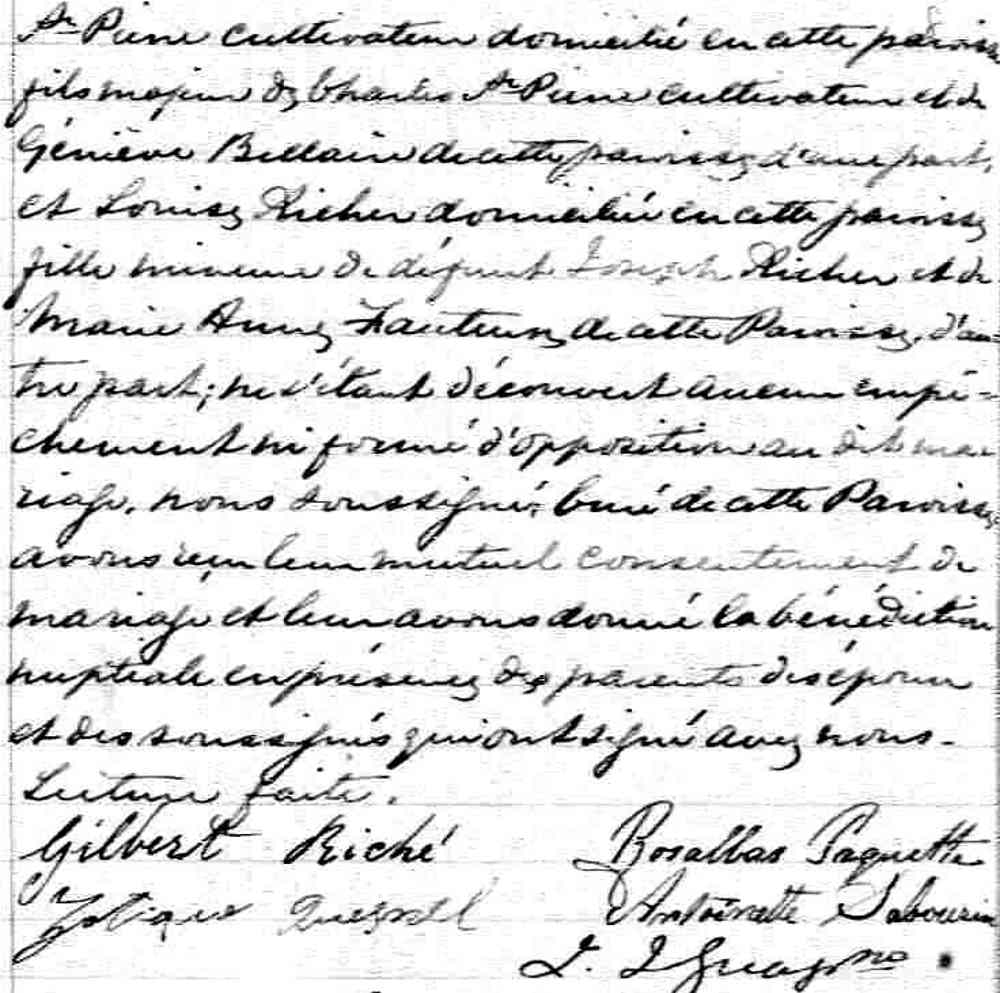 St Pierre cultivateur domicilié en cette paroisse
fils majeur de Charles St Pierre cultivateur et de
Géniève Bellair de cette paroisse d'une part,
et Louise Richer domiciliée en cette paroisse
fille mineure de défunt Joseph Richer et de
Marie Anne Fauteux de cette Paroisse, d'au=
tre part; ne s'étant découvert aucun empê-
chement ni formé d'opposition au dit ma
riage, nous soussigné, Curé de cette Paroisse
avons reçu leur mutuel consentement de
mariage et leur avons donné la bénédiction
nuptiale en présence des parents des époux
et des soussignés qui ont signé avec nous.
Lecture faite.
Gilbert Riché Rosalbas Paquette
Zotique Quesnel Antoinette Sabourin